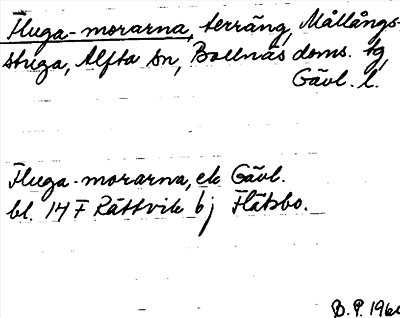 Fluga-morarna, terräng, Mållångs-
stuga, Alfta sn, Bollnäs doms. tg,
Gävl. l.
Fluga-morarna, ek Gävl.
bl. 14 F Rättvik bj Fläsbo.
B.P. 196